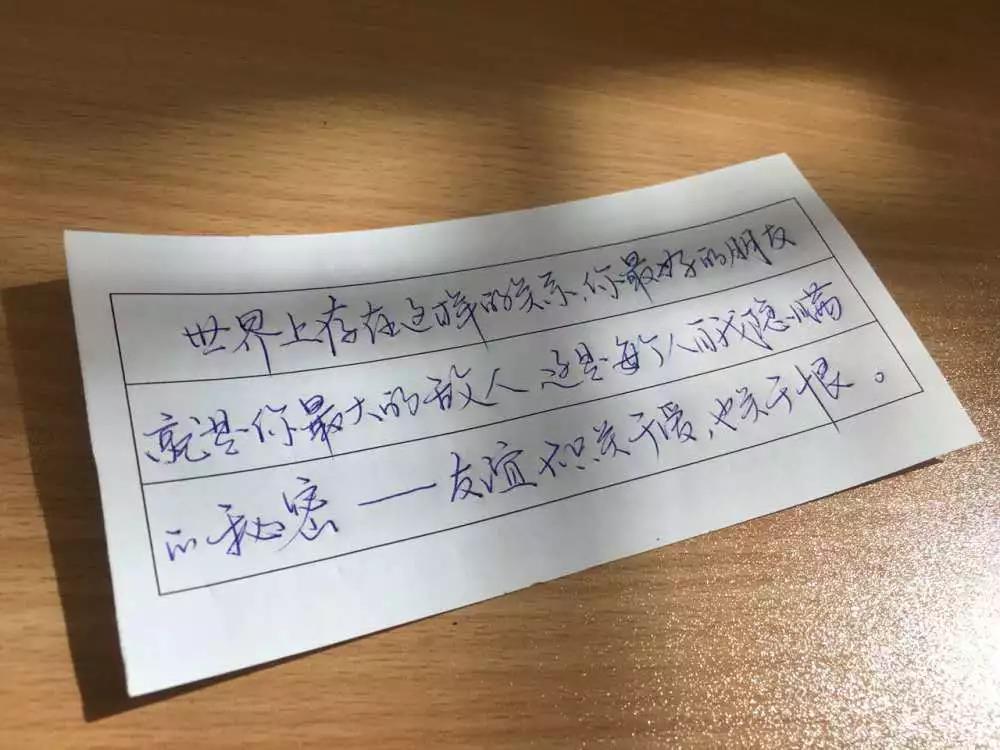 世界上存在这样的关系,你最好的朋友
就是你最大的敌人 这是每个人自我隐瞒
的秘密——友谊不只关于爱,也关于恨。